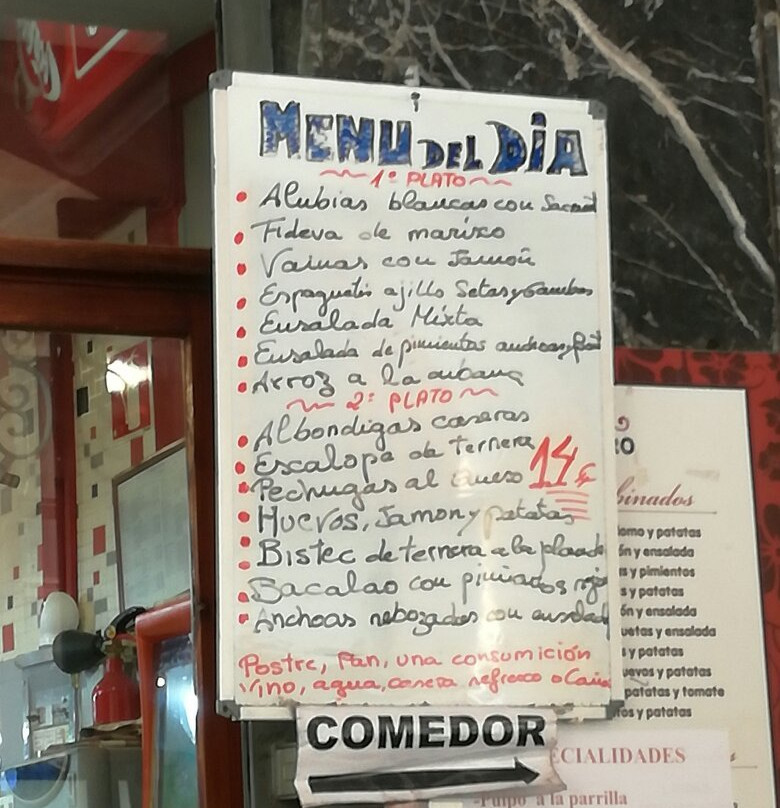 MENU DEL DIA
1º PLATO
Alubias blancas con
Fideva de marixco
Vainas con Jamoñ
Espaguetis ajillo Setas y Gambas
Ensalada Mixta
Ensalada de pimientos anchoas y
Arroz a la cubana
2º PLATO
Albondigas caseras
Escalope de ternera
Pechugas al queso 14€
Huevos, Jamon y patatas
Bistec de ternera a la plancha
Bacalao con pimientos rojos
Anchoas rebozadas con ensalad
Postre, Pan, una consumición
Vino, agua, casera refresco o Caña
COMEDOR
binados
lomo y patatas
ón y ensalada
s y pimientos
s y patatas
ón y ensalada
uetas y ensalada
s y patatas
uevos y patatas
patatas y tomate
tos y patatas
ECIALIDADES
-Pulpo a la parrilla